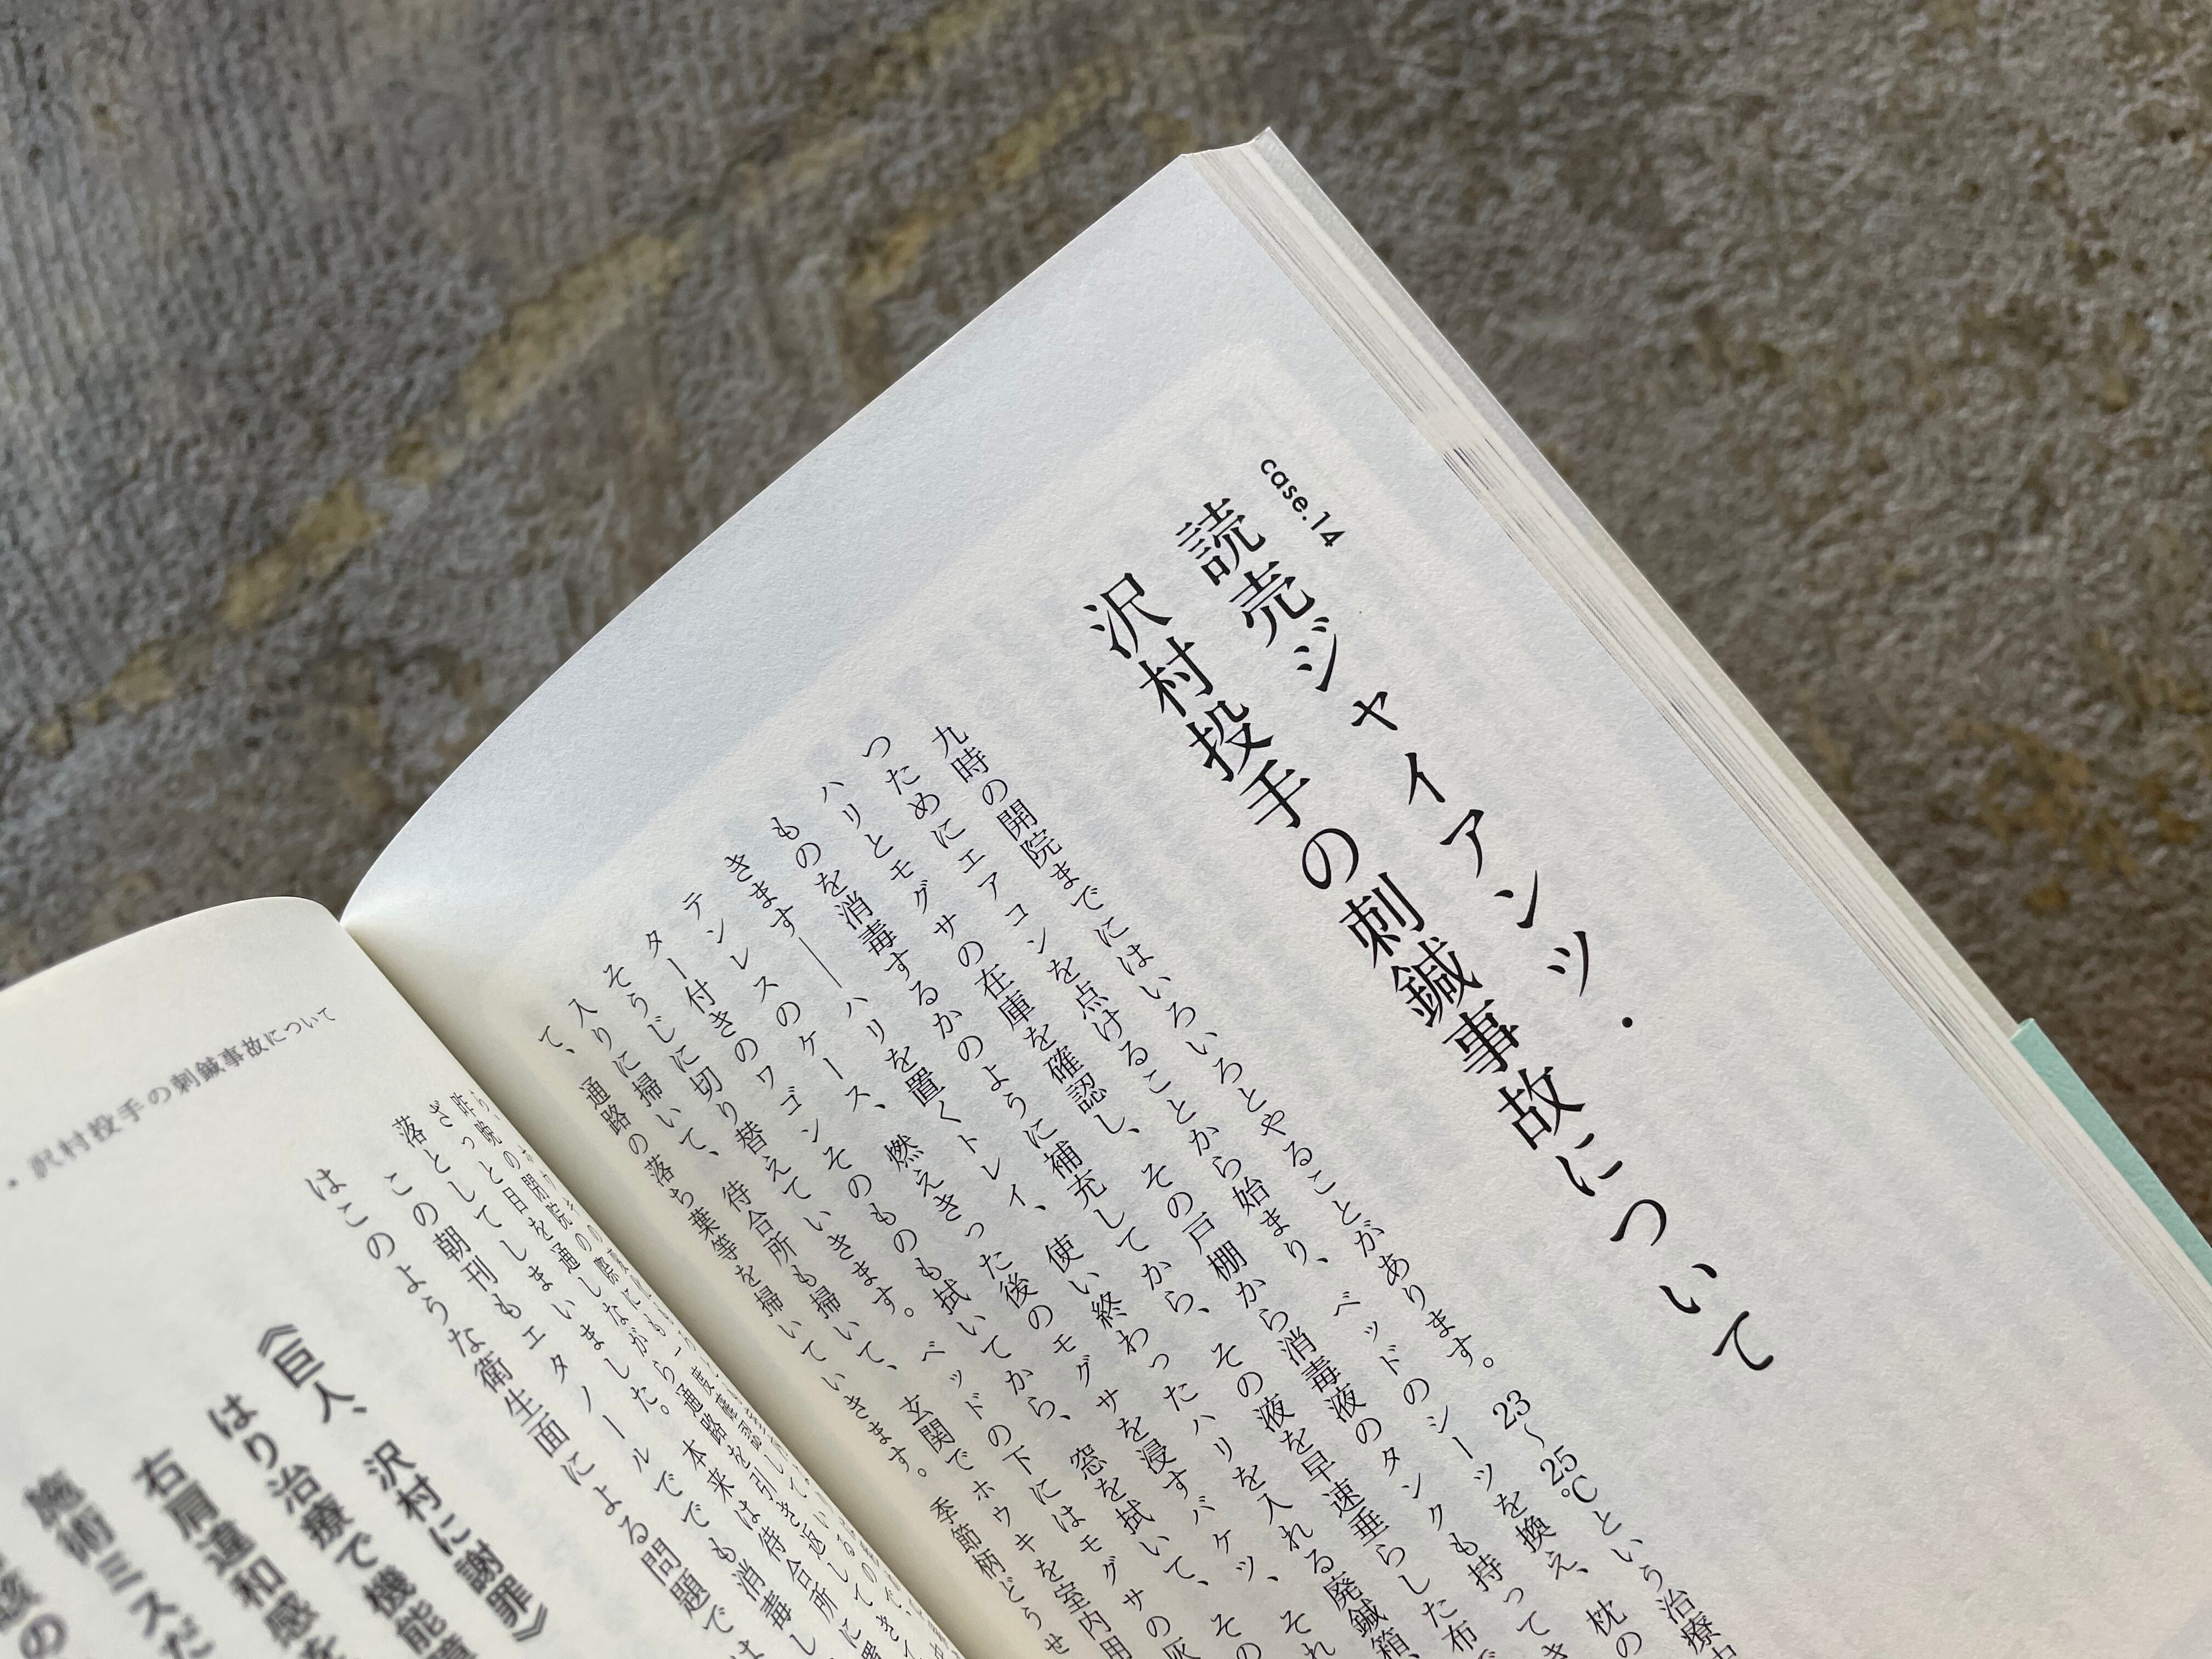 case.14
読売ジャイアンツ・
沢村投手の刺鍼事故について
九時の開院までにはいろいろとやることがあります。23〜25℃という治療
つためにエアコンを点けることから始まり、ベッドのシーツを換え、枕の
ハリとモグサの在庫を確認し、その戸棚から消毒液のタンクも持ってき
ものを消毒するかのように補充してから、その液を早速垂らした布で
きます——ハリを置くトレイ、使い終わったハリを入れる廃鍼箱、
テンレスのケース、燃えきった後のモグサを浸すバケツ、それ
ター付きのワゴンそのものも拭いてから、窓を拭いて、その
そうじに切り替えていきます。ベッドの下にはモグサの灰
入りに掃いて、待合所も掃いて、玄関でホウキを室内用
て、通路の落ち葉等を掃いていきます。季節柄どうせ
・沢村投手の刺鍼事故について
ざっと目を通しながら通路を引き返してき
落としてしまいました。本来は待合所に置
この朝刊もエタノールででも消毒し
はこのような衛生面による問題では
《巨人、沢村に謝罪》
はり治療で機能障
右肩違和感を
施術ミスだ